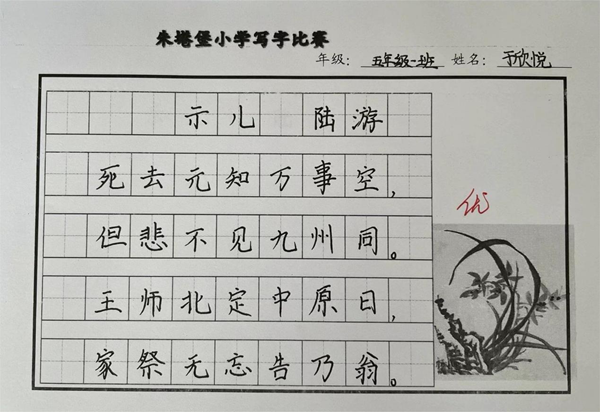 朱塔堡小学写字比赛
年级：五年级一班 姓名：于欣悦
示儿 陆游
死去元知万事空，
但悲不见九州同。
优
王师北定中原日，
家祭无忘告乃翁。